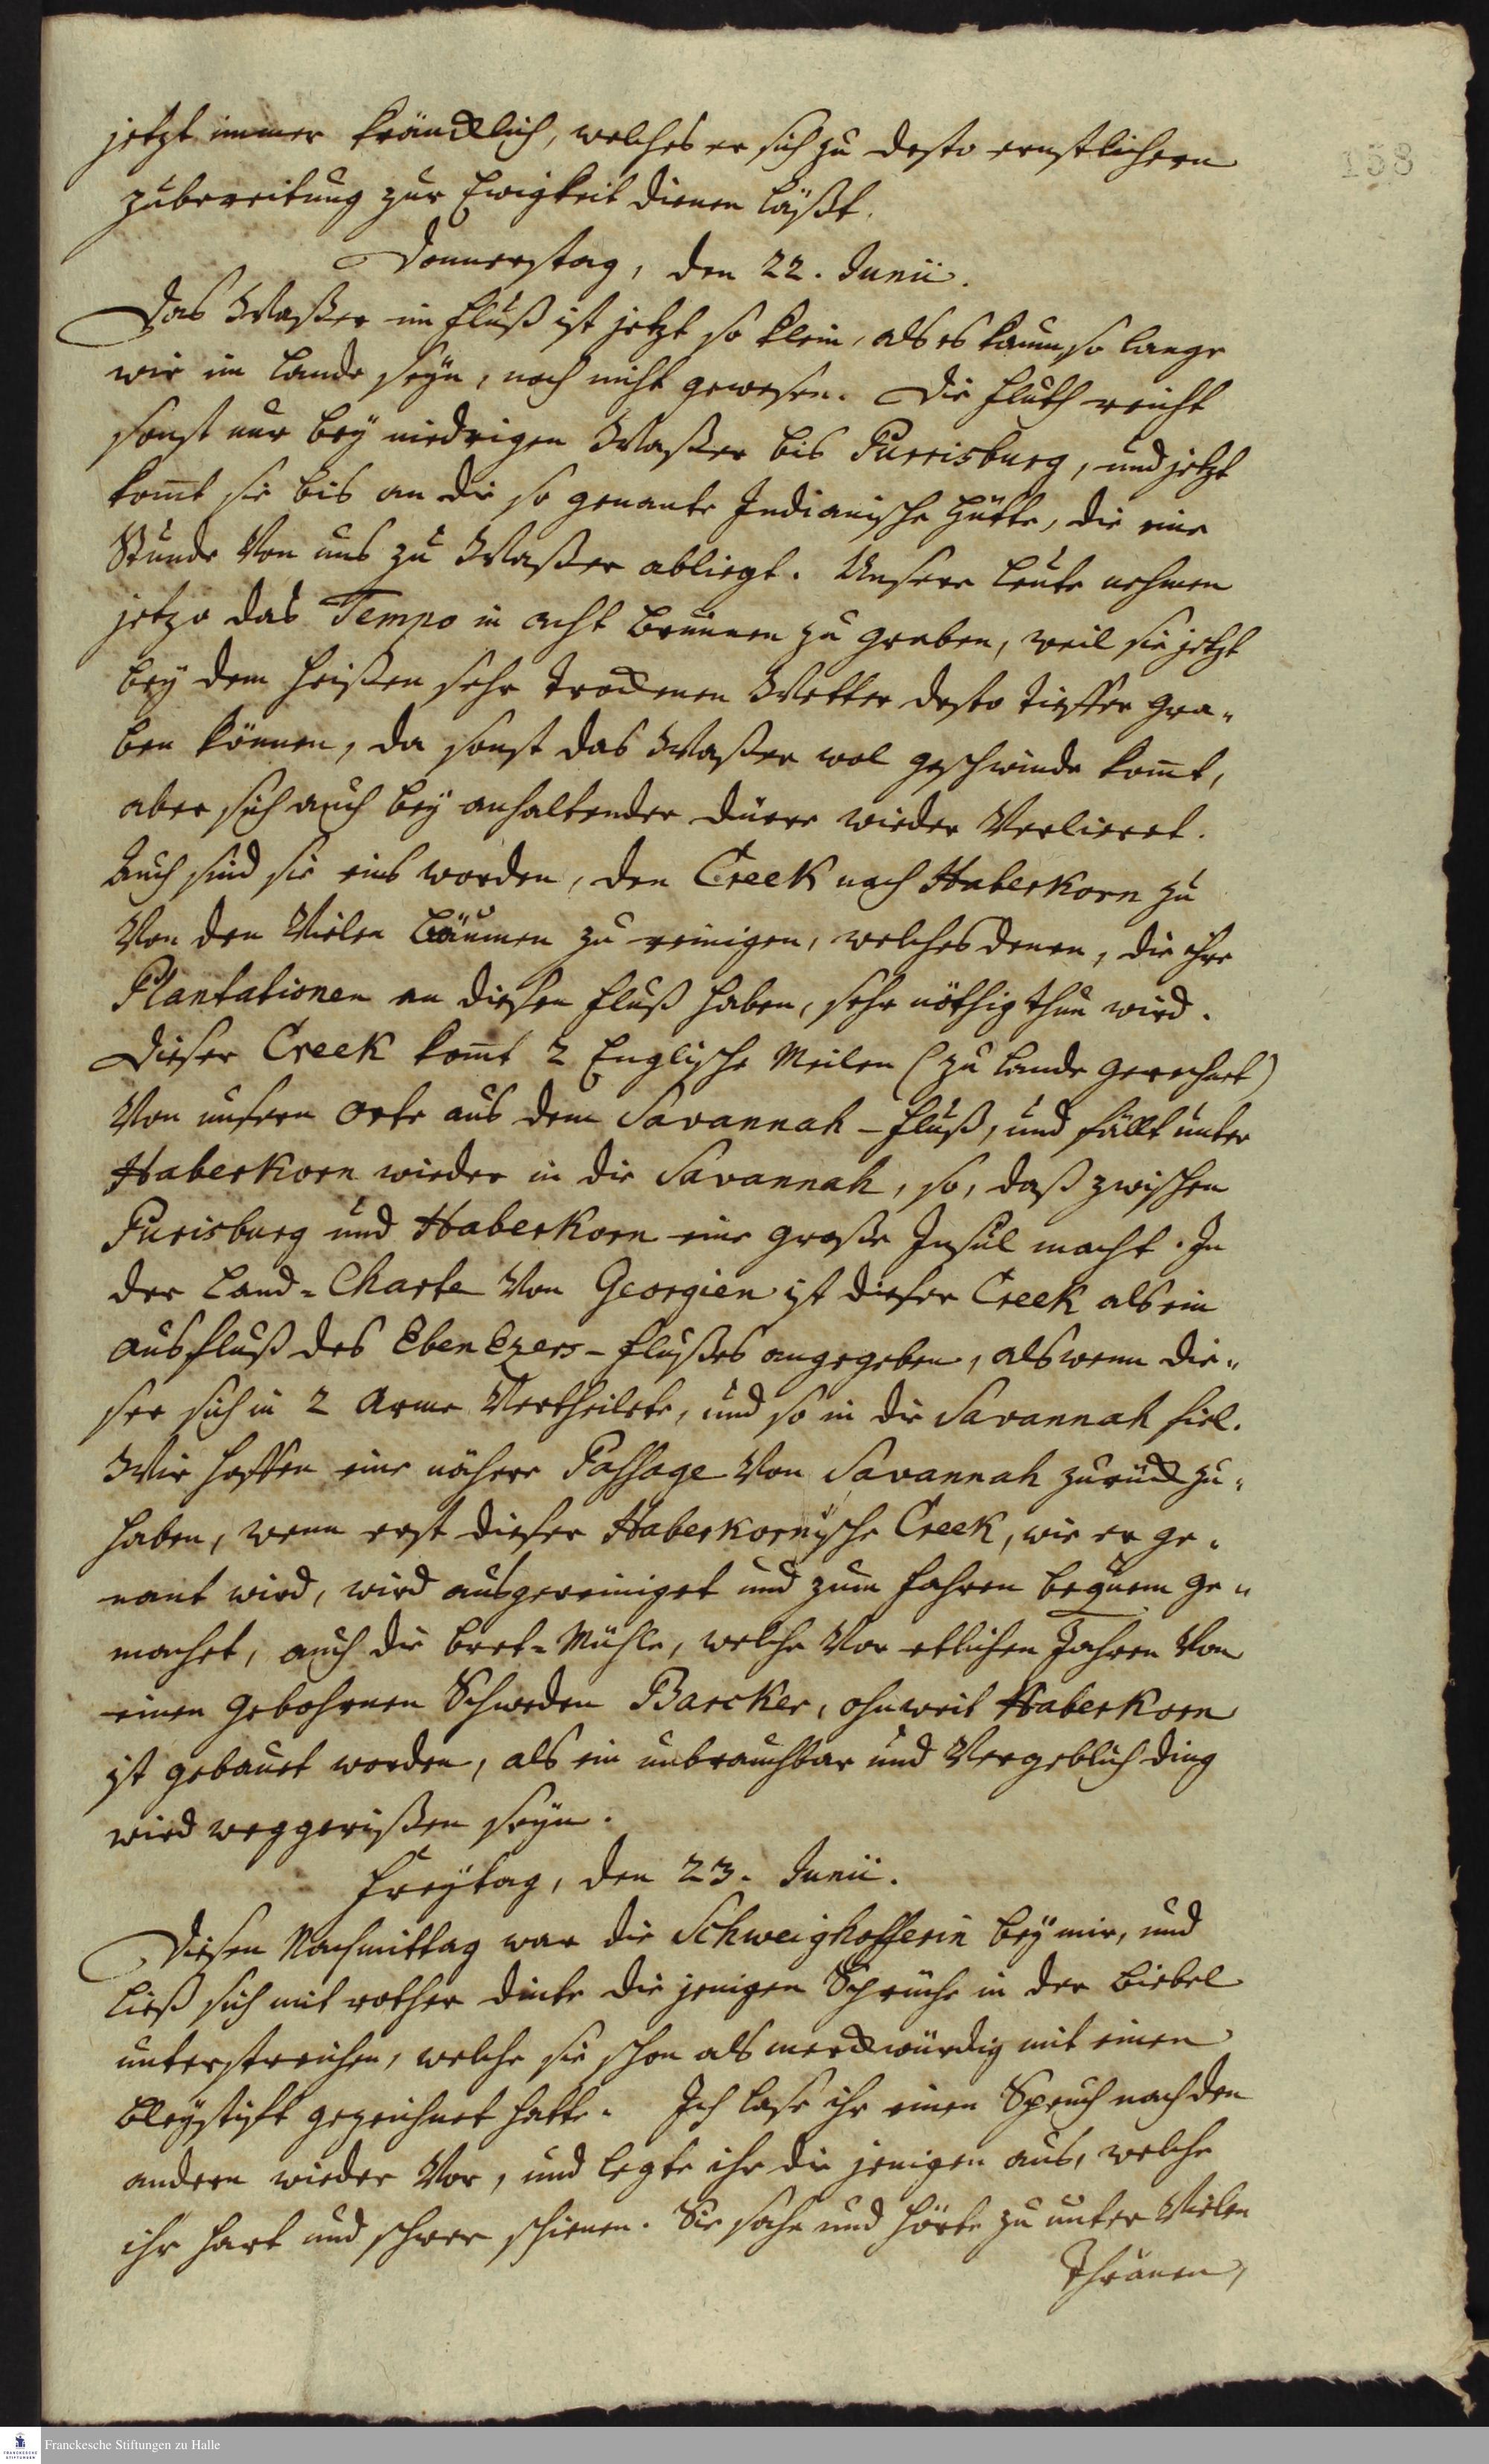 158
jetzt immer kräncklich, welches er sich zu desto ernstlichern
zubereitung zur Ewigkeit dienen läßt.
Donnerstag, den 22. Junii.
Das Waßer im Fluß ist jetzt so klein, als es kaum, so lange
wir im Lande seyn, noch nicht gewesen. Die Fluth reicht
sonst nur bey niedrigen Waßer bis Purrisburg, und jetzt
kom̅t sie bis an die so genante Indianische Hütte, die eine
Stunde von uns zu Waßer abliegt. Unsere Leute nehmen
jetzo das Tempo in acht Brunnen zu graben, weil sie jetzt
bey dem heißen sehr trockenen Wetter desto tieffer gra-
ben können, da sonst das Waßer wol geschwinde kom̅t,
aber sich auch bey anhaltender dürre wieder verlieret.
Auch sind sie eins worden, den Creek nach Haberkorn zu
von den vielen Bäumen zu reinigen, welches denen, die ihre
Plantationen an diesen Fluß haben, sehr nöthig thun wird.
Dieser Creek kom̅t 2 Englische Meilen (zu Lande gerechnet)
von unsern Orte aus dem Savannah-Fluß, und fällt unter
Haberkorn wieder in die Savannah, so, daß zwischen
Purisburg und Haberkorn eine große Insul macht. In
der Land-Charte von Georgien ist dieser Creek als ein
ausfluß des Ebenezers-Flußes angegeben, als wenn die-
ser sich in 2 Arme vertheilete, und so in die Savannah fiel.
Wir hoffen eine nähere Passage von Savannah zurück zu-
haben, wenn erst dieser Haberkornische Creek, wie er ge-
nant wird, wird ausgereiniget und zum fahren bequem ge-
machet, auch die Bret-Mühle, welche vor etlichen Jahren von
einen gebohrnen Schweden Barcker, ohnweit Haberkorn
ist gebauet worden, als ein unbrauchbar und vergeblich ding
wird weggerißen seyn.
Freytag, den 23. Junii.
Diesen Nachmittag war die Schweighofferin bey mir, und
ließ sich mit rother dinte die jenigen Sprüche in der Biebel
unterstreichen, welche sie schon als merckwürdig mit einen
Bleystift gezeichnet hatte. Ich lase ihr einen Spruch nach den
andern wieder vor, und legte ihr die jenigen aus, welche
ihr hart und schwer schienen. Sie sahe und hörte zu unter vielen
Thränen,
FRANCKESCHE STIFTUNGEN
Franckesche Stiftungen zu Halle